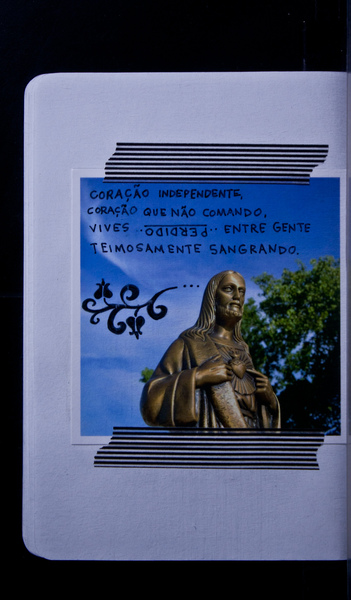 CORAÇÃO INDEPENDENTE,
CORAÇÃO QUE NÃO COMANDO,
VIVES ..PERDIDO.. ENTRE GENTE
TEIMOSAMENTE SANGRANDO.
...